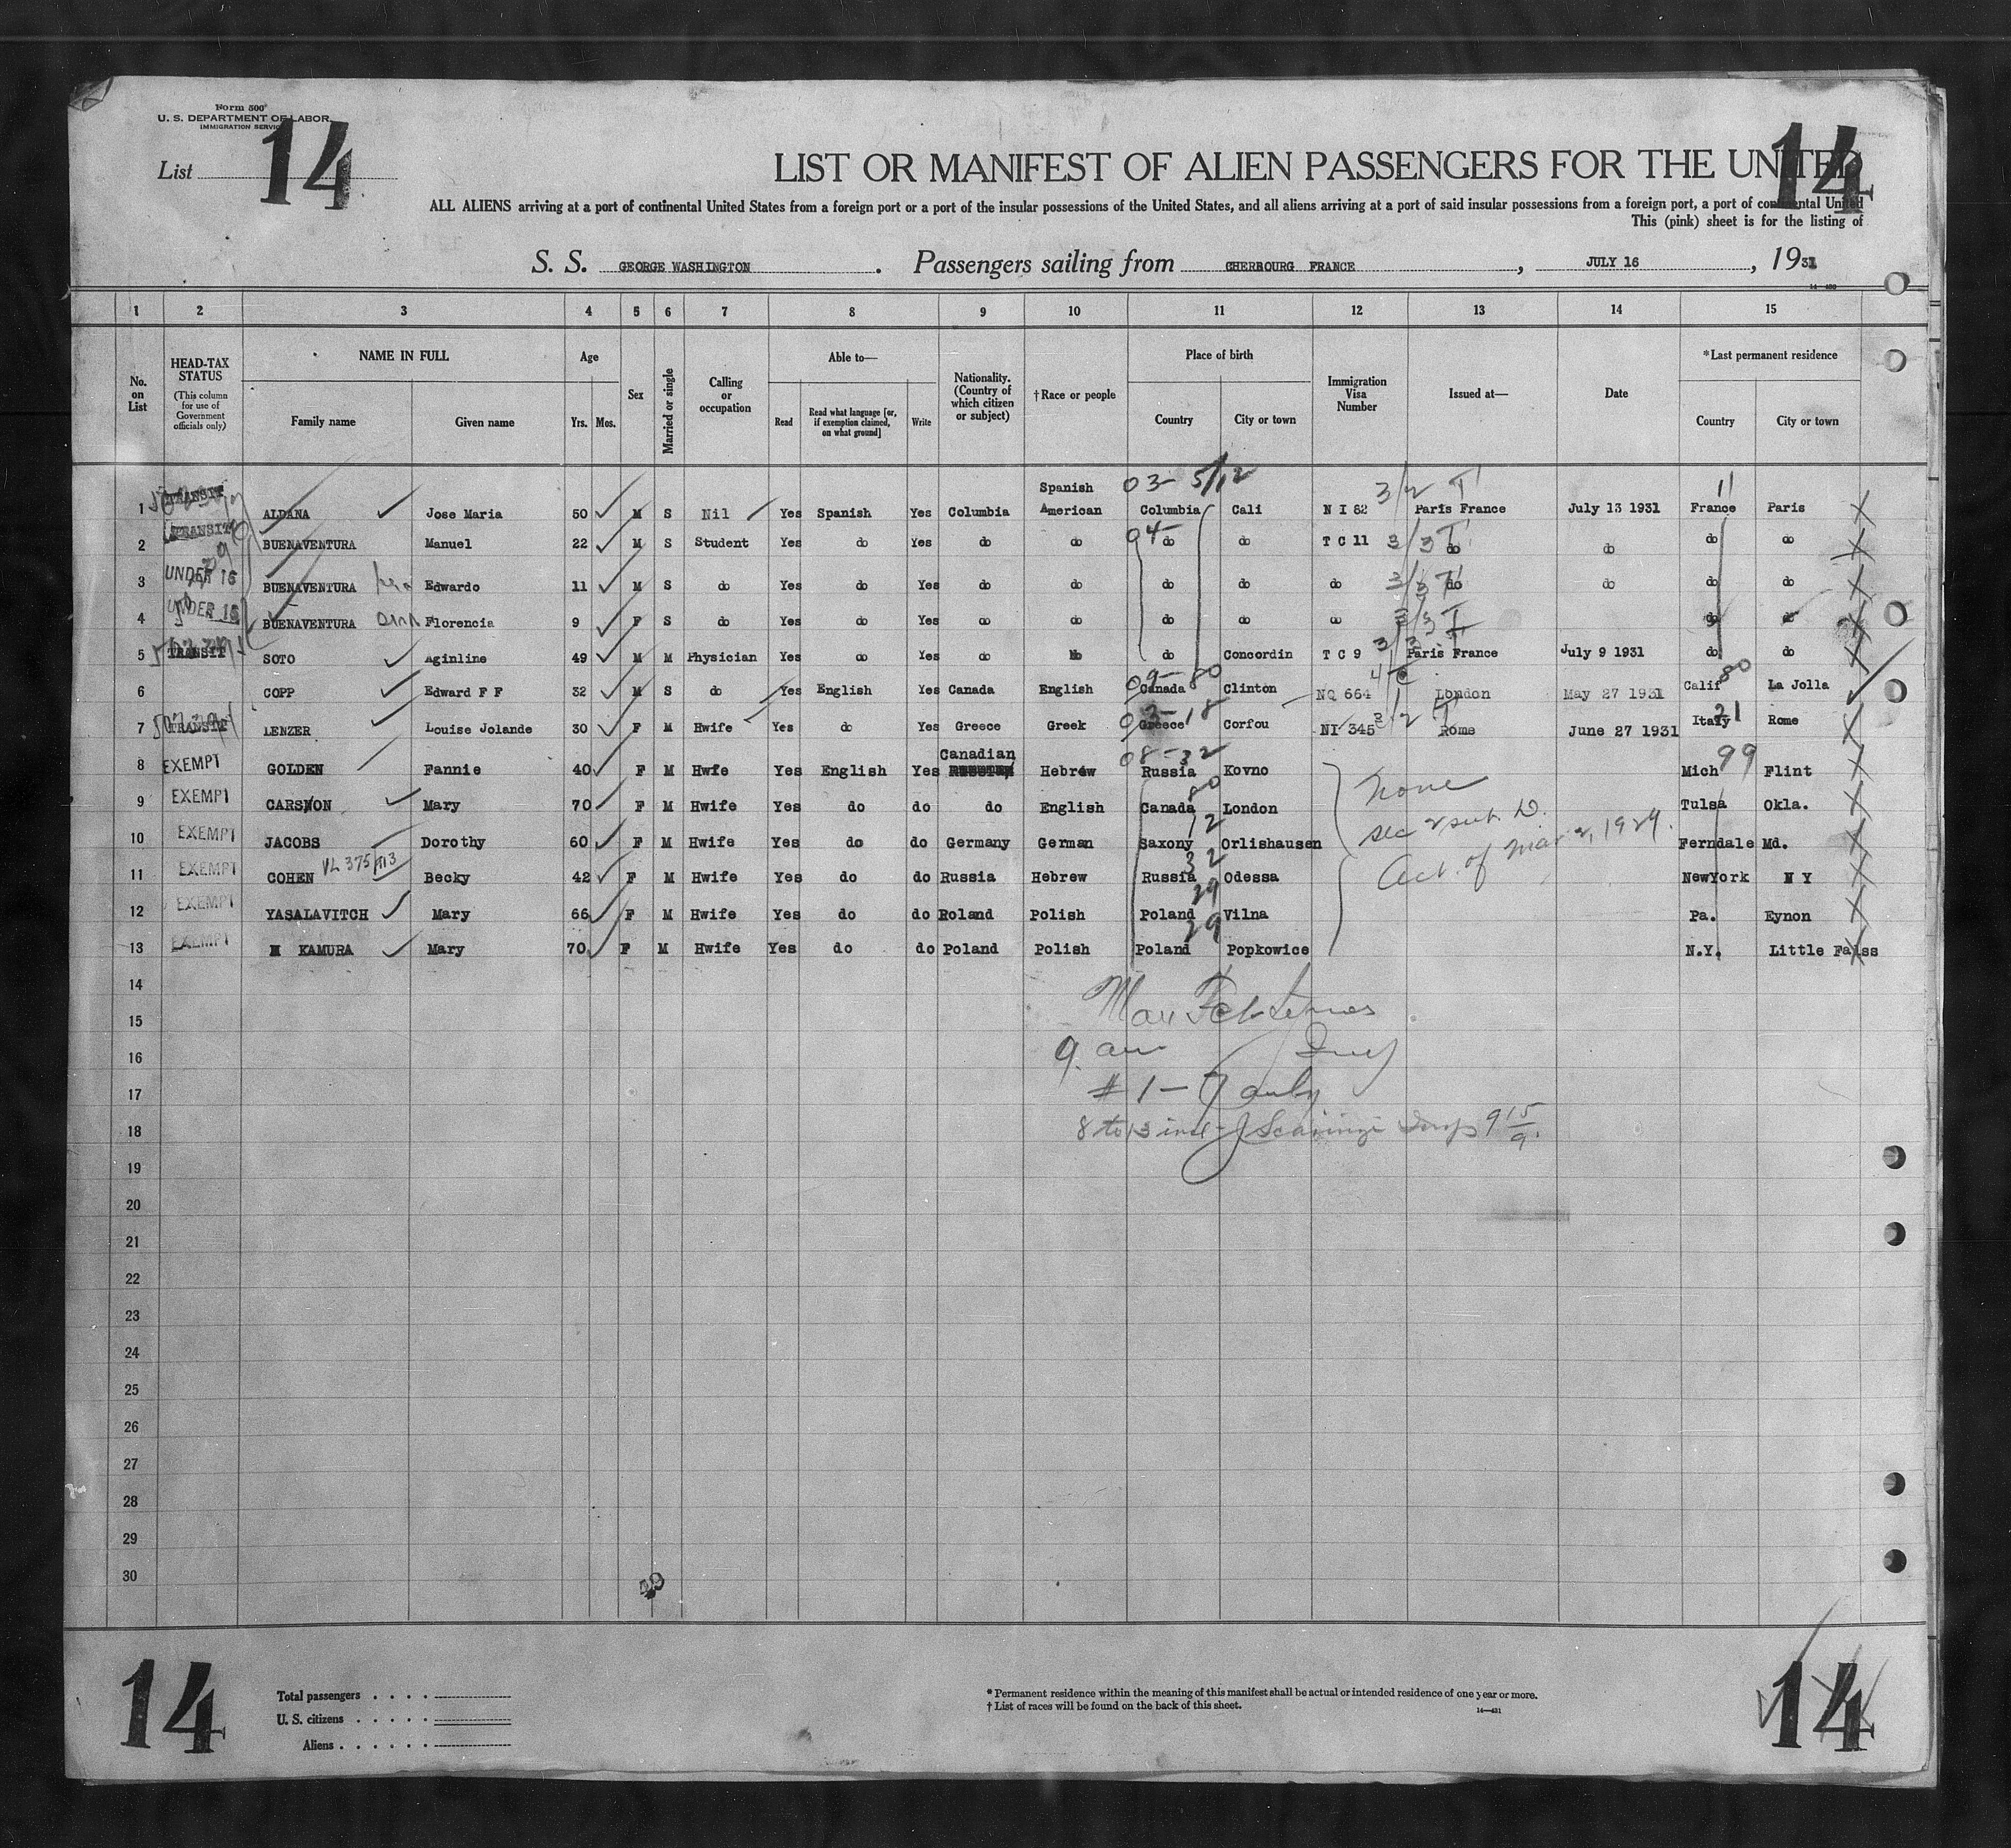 Form 500
U. S. DEPARTMENT OF LABOR
IMMIGRATION SERVICE
List 14
14
LIST OR MANIFEST OF ALIEN PASSENGERS FOR THE UNITED
ALL ALIENS arriving at a port of continental United States from a foreign port or a port of the insular possessions of the United States, and all aliens arriving at a port of said insular possessions from a foreign port, a port of continental United
This (pink) sheet is for the listing of
S. S. GEORGE WASHINGTON . Passengers sailing from CHERBOURG FRANCE , JULY 16 , 1931
1 2 3 4 5 6 7 8 9 10 11 12 13 14 15
No. on List
HEAD-TAX STATUS
(This column for use of Government officials only)
NAME IN FULL
Family name Given name
Age
Yrs. Mos.
Sex
Married or single
Calling or occupation
Able to—
Read Read what language [or, if exemption claimed, on what ground] Write
Nationality. (Country of which citizen or subject)
† Race or people
Place of birth
Country City or town
Immigration Visa Number
Issued at—
Date
* Last permanent residence
Country City or town
03 5/12 3/2 T 11
1 TRANSIT ALDANA Jose Maria 50 M S Nil Yes Spanish Yes Columbia Spanish American Columbia Cali N I 82 Paris France July 13 1931 France Paris
04 3/3 T
2 TRANSIT BUENAVENTURA Manuel 22 M S Student Yes do Yes do do do do T C 11 do do do do
3/3 T
3 UNDER 16 BUENAVENTURA Edwardo 11 M S do Yes do Yes do do do do do do do do do
3/3 T
4 UNDER 16 BUENAVENTURA Florencia 9 F S do Yes do Yes do do do do do do do
5 TRANSIT SOTO Aginline 49 M M Physician Yes do Yes do do Concordin T C 9 Paris France July 9 1931 do do
09-80 4 80
6 COPP Edward F F 32 M S do Yes English Yes Canada English Canada Clinton NQ 664 London May 27 1931 Calif La Jolla
03-18 2 T 21
7 TRANSIT LENZER Louise Jolande 30 F M Hwife Yes do Yes Greece Greek Greece Corfou NI 345 Rome June 27 1931 Italy Rome
08-32 99
8 EXEMPT GOLDEN Fannie 40 F M Hwfe Yes English Yes Canadian Hebrew Russia Kovno Mich Flint
80 None
9 EXEMPT CARSON Mary 70 F M Hwife Yes do do do English Canada London Tulsa Okla.
12 sec 2 sub. D.
10 EXEMPT JACOBS Dorothy 60 F M Hwife Yes do do Germany German Saxony Orlishausen Ferndale Md.
VL 375/713 32 Act. of Mar 2, 1929.
11 EXEMPT COHEN Becky 42 F M Hwife Yes do do Russia Hebrew Russia Odessa NewYork N Y
29
12 EXEMPT YASALAVITCH Mary 66 F M Hwife Yes do do Roland Polish Poland Vilna Pa. Eynon
29
13 EXEMPT KAMURA Mary 70 F M Hwife Yes do do Poland Polish Poland Popkowice N.Y. Little Falss
14
15
16
17 # 1 - 7 only
18 8 to 13 incl
19
20
21
22
23
24
25
26
27
28
29
30
14
Total passengers
U. S. citizens
Aliens
* Permanent residence within the meaning of this manifest shall be actual or intended residence of one year or more.
† List of races will be found on the back of this sheet.
14—431
14